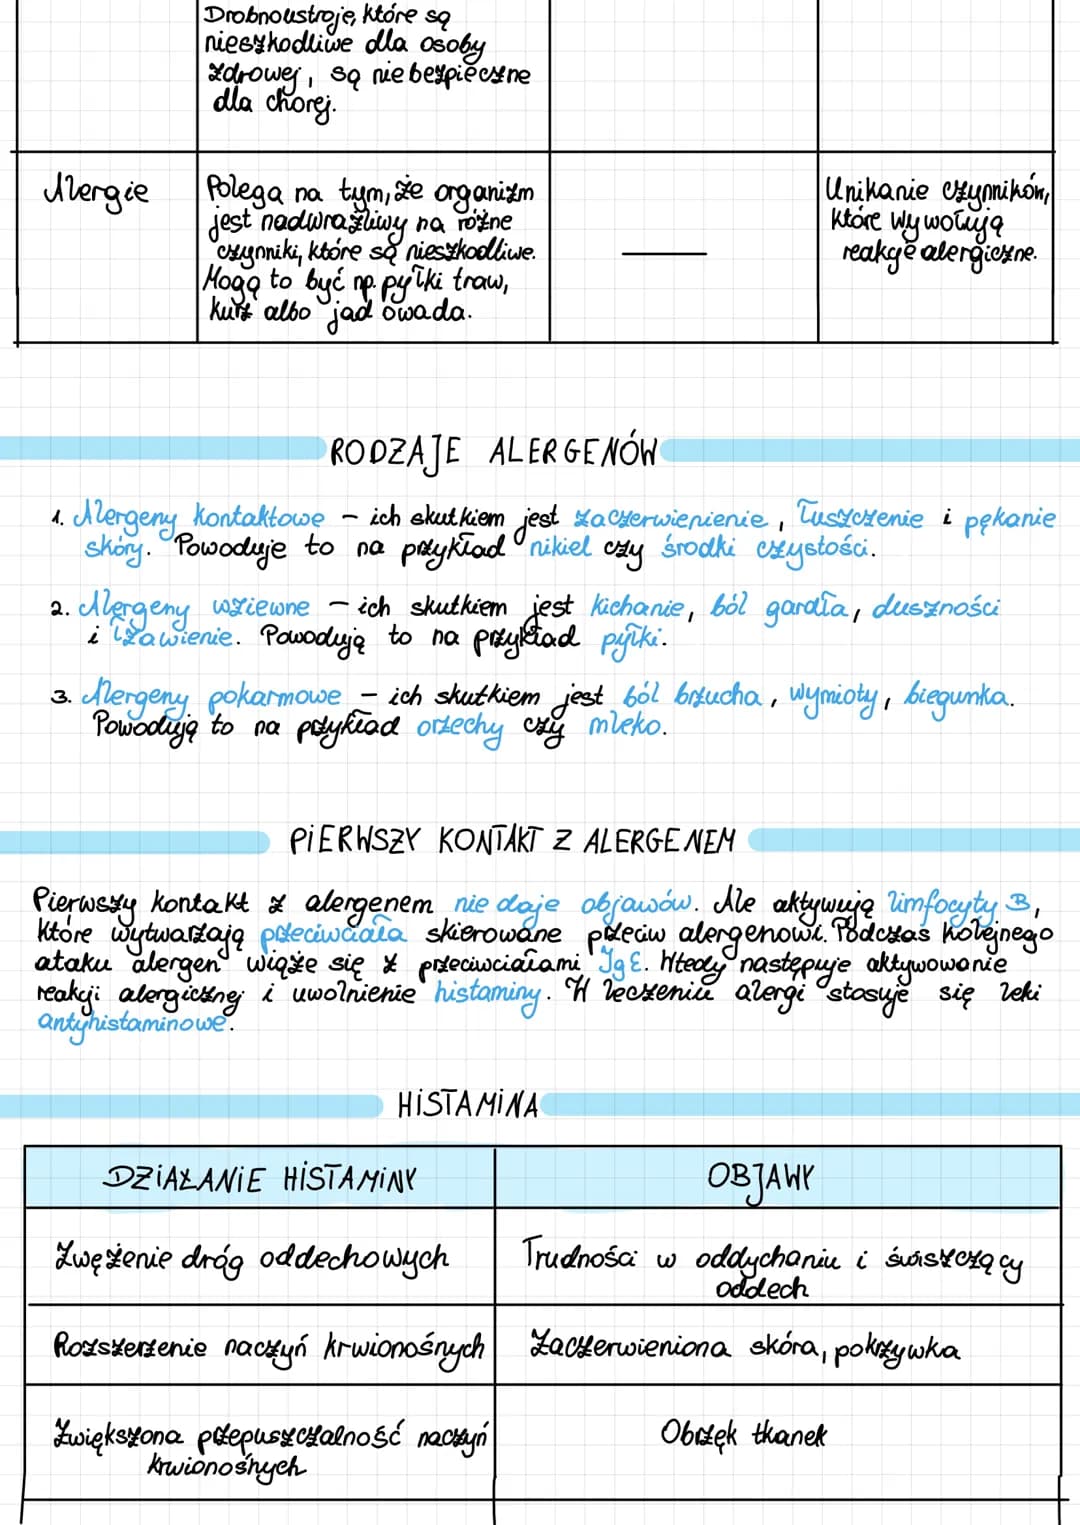 Drobnoustroje, które są
nieszkodliwe dla osoby
zdrowej, są niebezpieczne
dla chorej.
Alergie
Polega na tym, że organizm
jest nadwrażliwy na różne
czynniki, które są nieszkodliwe.
Mogą to być np. pyłki traw,
kurz albo jad owada.
Unikanie czynników,
które wywołują
reakcje alergiczne.
RODZAJE ALERGENÓW
1. Alergeny kontaktowe - ich skutkiem jest zaczerwienienie, łuszczenie i pękanie
skóry. Powoduje to na przykład nikiel czy środki czystości.
2. Alergeny wziewne - ich skutkiem jest kichanie, ból gardła, duszności
i łzawienie. Powodują to na przykład pyłki.
3. Alergeny pokarmowe - ich skutkiem jest ból brzucha, wymioty, biegunka.
Powodują to na przykład orzechy czy mleko.
PIERWSZY KONTAKT Z ALERGENEM
Pierwszy kontakt z alergenem nie daje objawów. Ale aktywują limfocyty B,
które wytwarzają przeciwciała skierowane przeciw alergenowi. Podczas kolejnego
ataku alergen wiąże się z przeciwciałami IgE. Wtedy następuje aktywowanie
reakcji alergicznej i uwolnienie histaminy. W leczeniu alergi stosuje się leki
antyhistaminowe.
HISTAMINA
DZIAŁANIE HISTAMINY
OBJAWY
Zwężenie dróg oddechowych
Trudności w oddychaniu i świszczący
oddech
Rozszerzenie naczyń krwionośnych
Zaczerwieniona skóra, pokrzywka
Zwiększona przepuszczalność naczyń
krwionośnych
Obrzęk tkanek